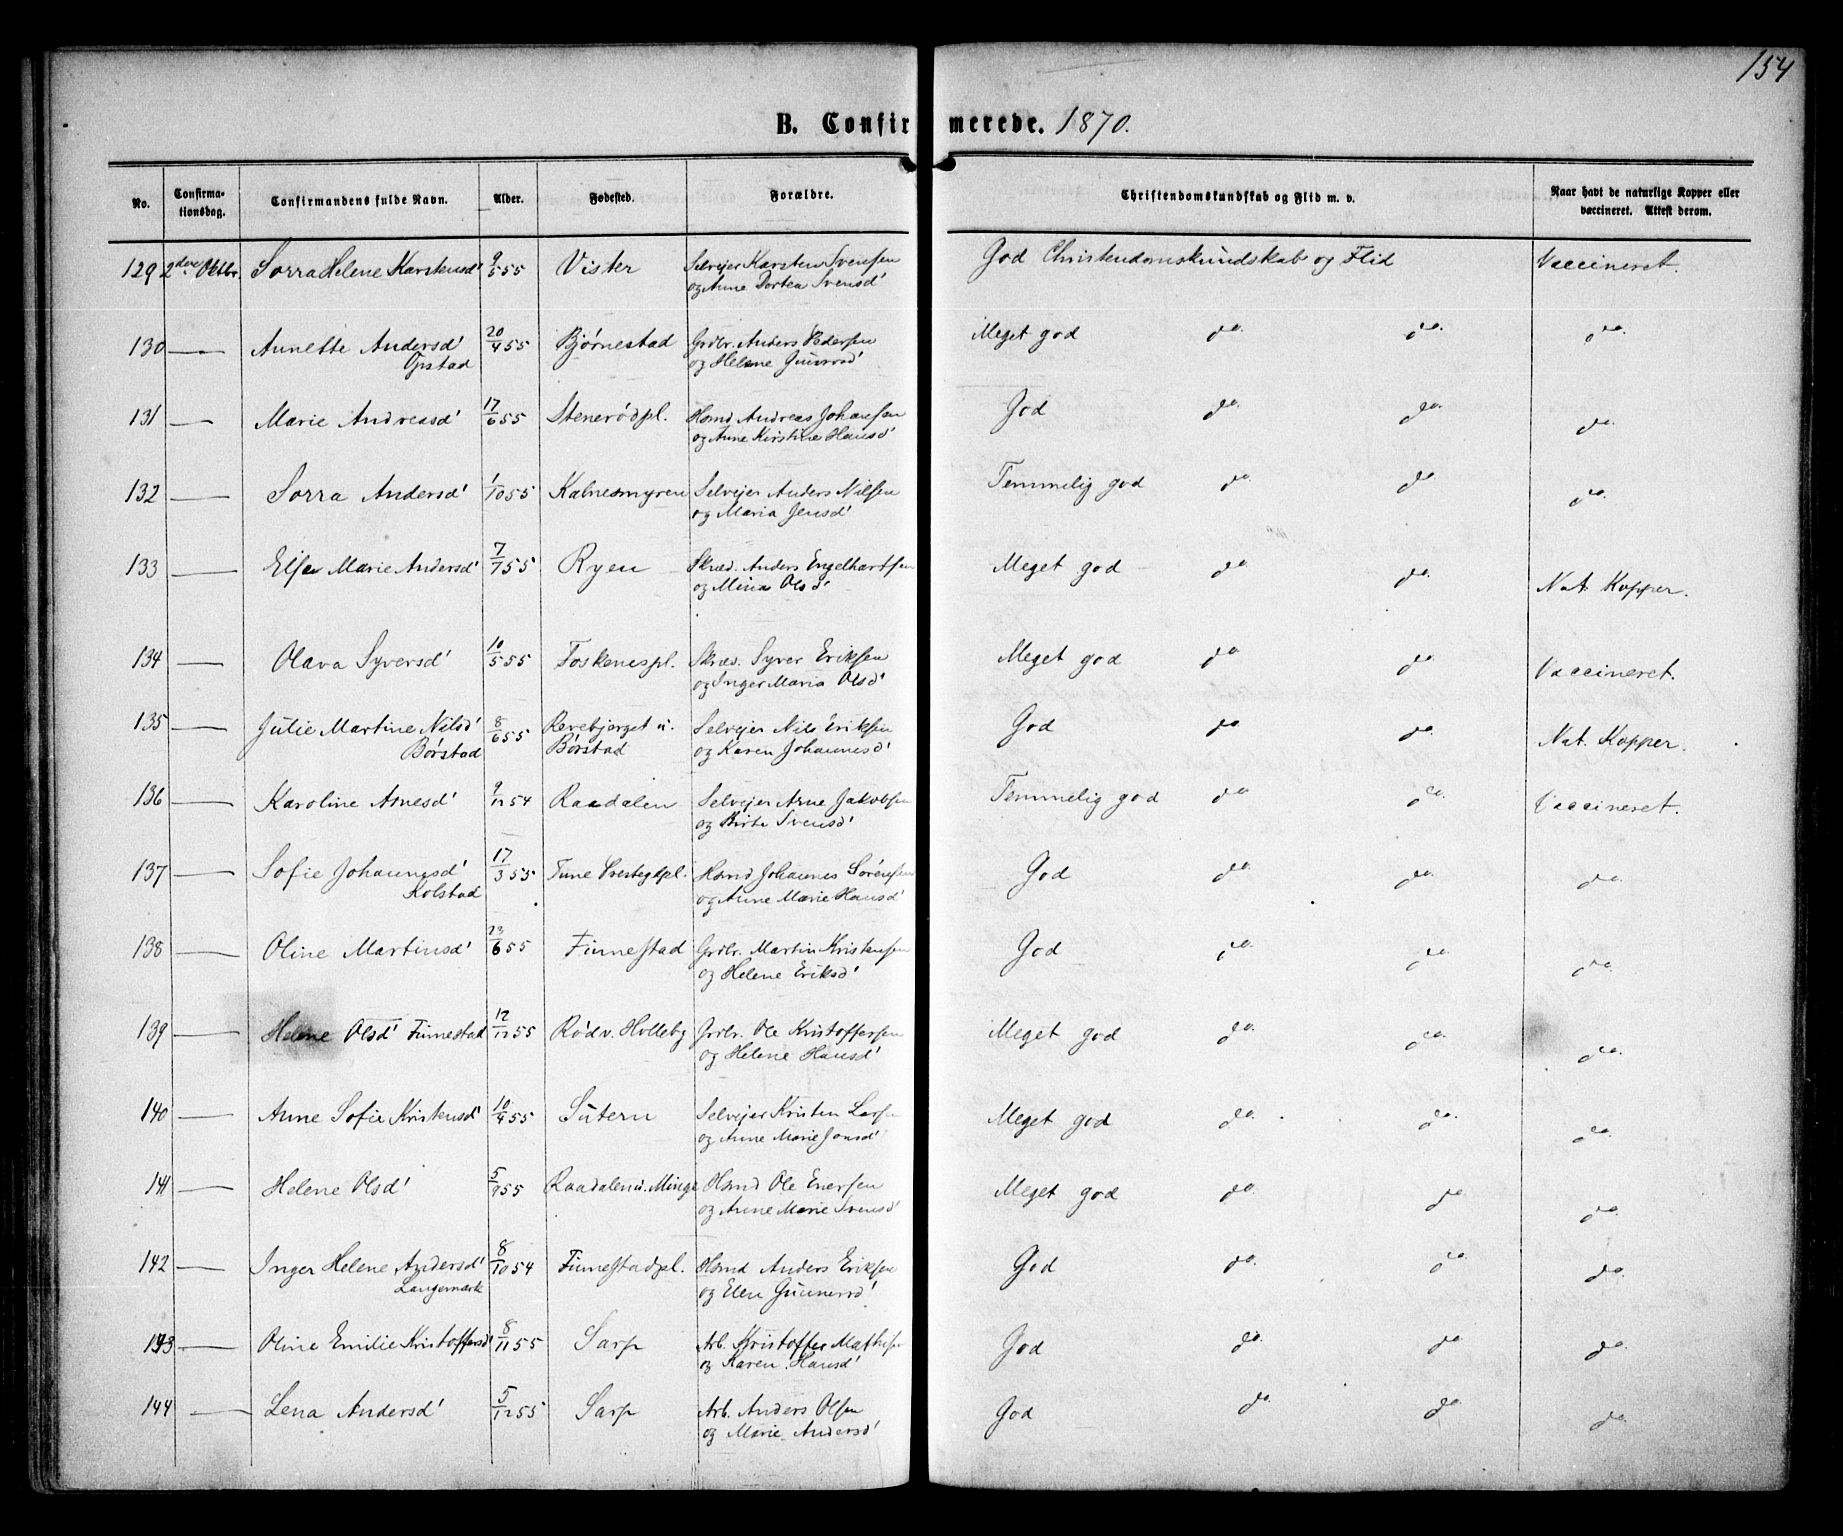 154
B. Confirmerede. 1870.
No. Confirmationsdag. Confirmandens fulde Navn. Alder. Fødested. Forældre. Christendomskundskab og Flid m. v. Naar havt de naturlige Kopper eller vaccineret. Attest derom.
129 2den Oktbr. Sorra Helene Karstensd' 9/5 55 Vister Selvejer Karsten Svensen God Christendomskundskab og Flid Vaccineret.
og Anne Dortea Svensd'
130 — Annette Andersd' 20/4 55 Bjørnestad Grdbr. Anders Pedersen Meget god do. do. do.
Opstad og Helene Gunnersd'
131 — Marie Andreasd' 17/6 55 Stenerødpl. Hsmd Andreas Johansen God do. do. do.
og Anne Kirstine Hansd'
132 — Sorra Andersd' 1/10 55 Kalnesmyren Selvejer Anders Nilsen Temmelig god do do. do.
og Maria Jensd'
133 — Elise Marie Andersd' 7/7 55 Ryen Skræd. Anders Engelhartsen Meget god do do. Nat. Kopper.
og Mina Olsd'
134 — Olava Syversd' 10/5 55 Foskenespl. Skræd. Syver Eriksen Meget god do do. Vaccineret.
og Inger Maria Olsd'
135 — Julie Martine Nilsd' 8/6 55 Revebjerget u. Selvejer Nils Eriksen God do do. Nat. Kopper.
Børstad Børstad og Karen Johannesd'
136 — Karoline Arnesd' 9/12 54 Raadalen Selvejer Arne Jakobsen Temmelig god do do. Vaccineret.
og Birte Svensd'
137 — Sofie Johannesd' 17/3 55 Tune Prestegdpl. Hsmd Johannes Sørensen God do do. do.
Kolstad og Anne Marie Hansd'
138 — Oline Martinsd' 23/6 55 Finnestad Grdbr. Martin Kristensen God do. do. do.
og Helene Eriksd'
139 — Helene Olsd' Finnestad 12/12 55 Rød v. Holleby Grdbr. Ole Kristoffersen Meget god do. do. do.
og Helene Hansd'
140 — Anne Sofie Kristensd' 10/9 55 Sutern Selvejer Kristen Larsen Meget god do. do. do.
og Anne Marie Jonsd'
141 — Helene Olsd' 5/9 55 Raadalen u. Minge Hsmd Ole Enersen Meget god do. do. do.
og Anne Marie Svensd'
142 — Inger Helene Andersd' 8/10 54 Finnestadpl. Hsmd Anders Eriksen God do. do. do.
Langemark og Elen Gunnersd'
143 — Oline Emilie Kristoffersd' 8/11 55 Sarp Arb. Kristoffer Mathisen God do do do.
og Karen Hansd'
144 — Lena Andersd' 5/12 55 Sarp Arb. Anders Olsen God do. do. do.
og Marie Andersd'